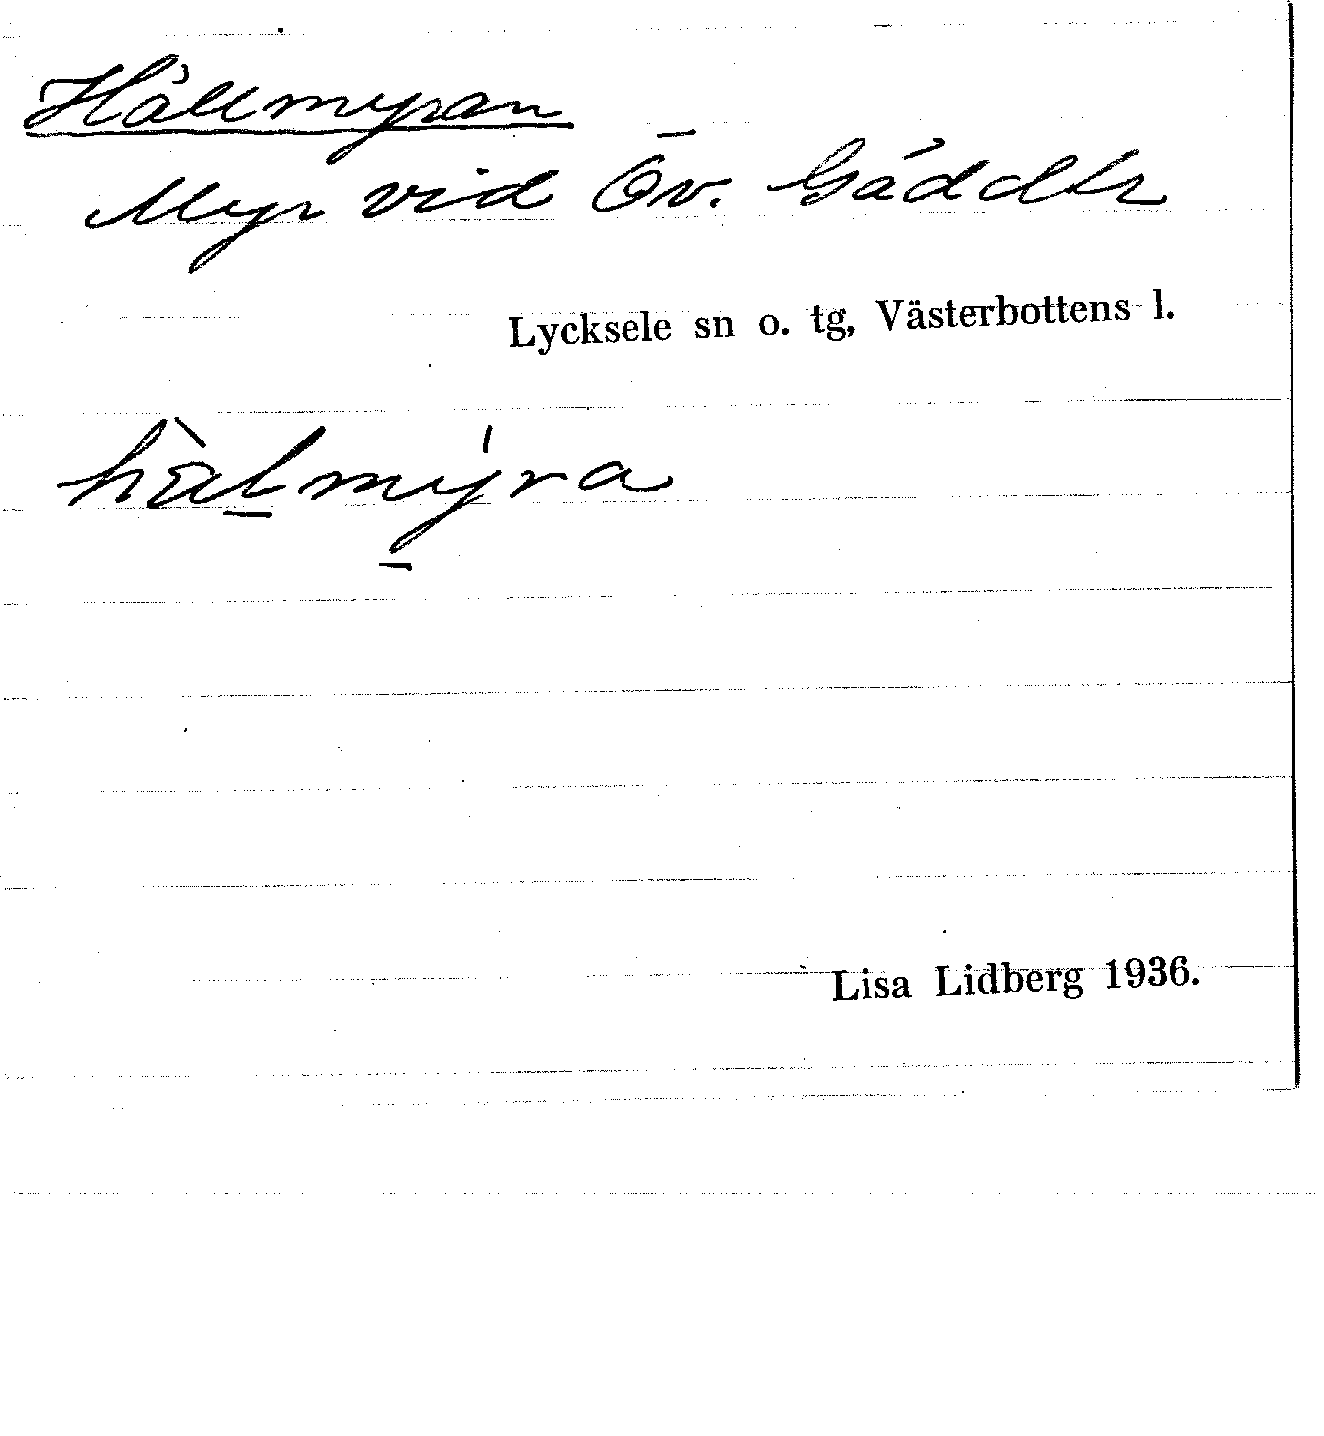 Hällmyran
Myr vid Öv. Gäddtr
Lycksele sn o. tg, Västerbottens l.
hälmýra
Lisa Lidberg 1936.